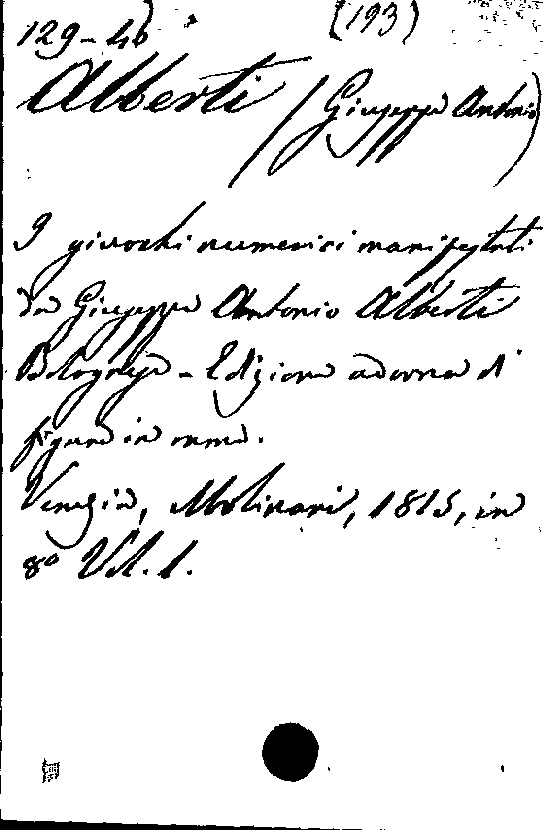 129-46 (193)
Alberti (Giuseppe Antonio)
I giuochi numerici manifestati
da Giuseppe Antonio Alberti
Bolognese - Edizione adorna di
figure in rame.
Venezia, Molinari, 1815, in
8º Vol. 1.